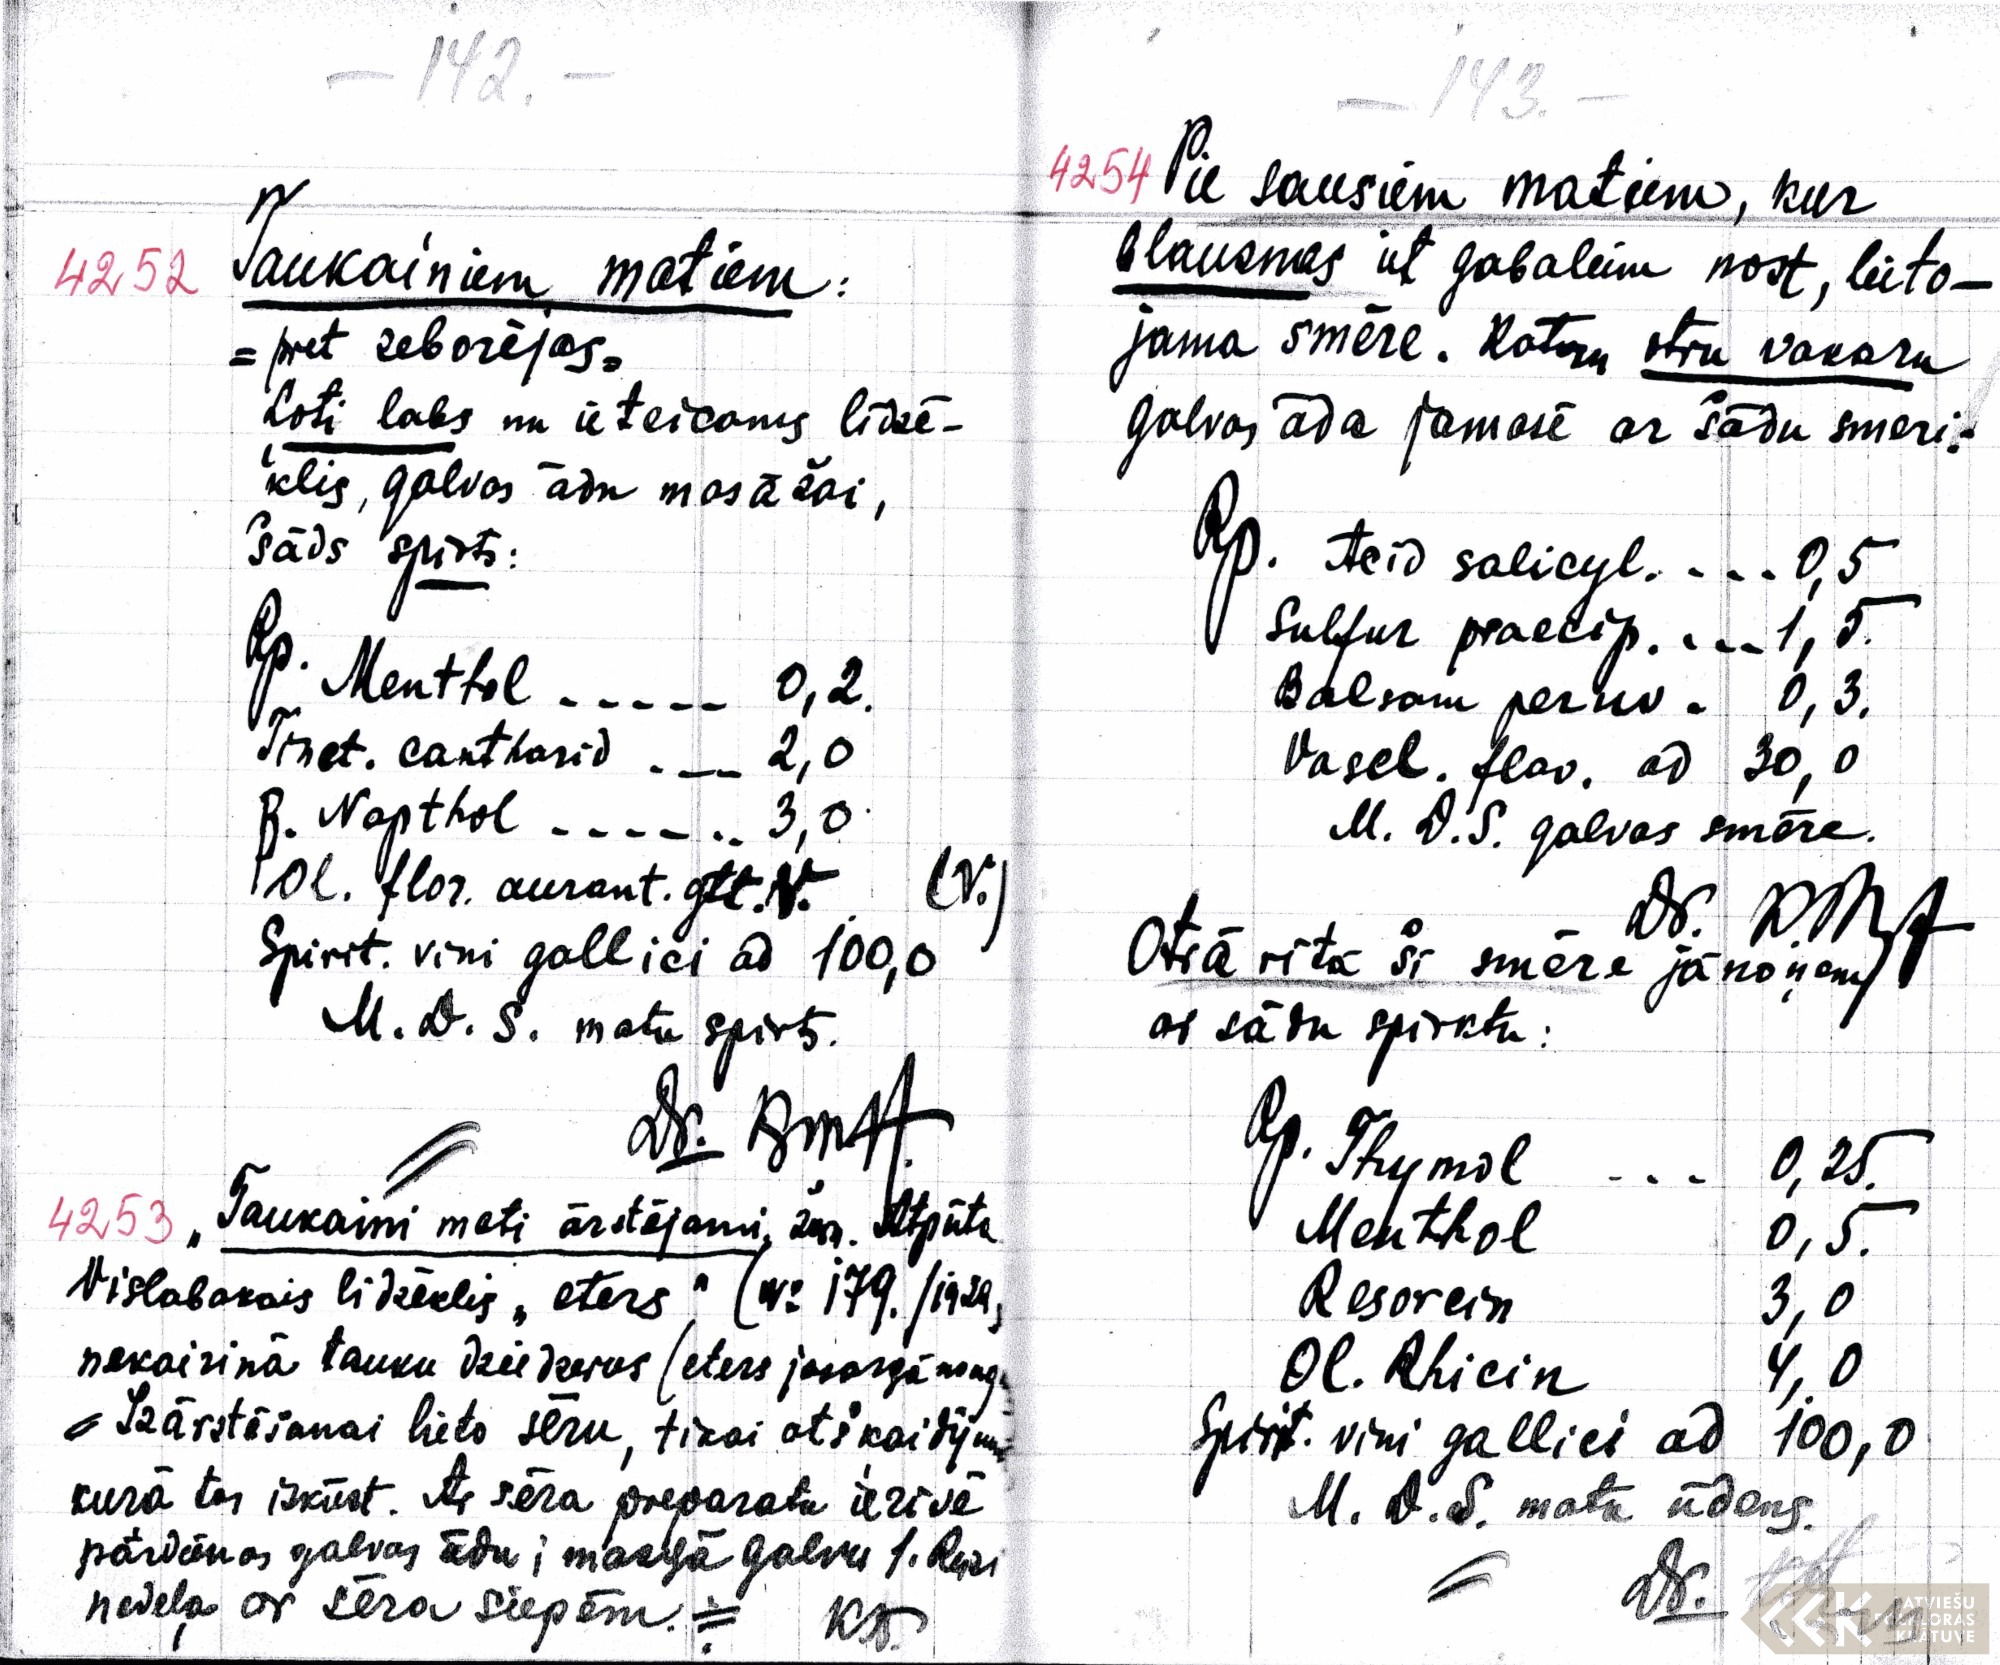 — 142. —
4252 Taukainiem matiem:
= pret zeborējas =
Ļoti labs un ieteicams līdzē-
klis, galvas ādu masāžai,
šāds spirts:
Rp. Menthol ----- 0,2.
Tinct. cantharid ---- 2,0
B. Napthol ------ 3,0.
Ol. flor. aurant. gtt. V. (V.)
Spirit. vini gallici ad 100,0
M. D. S. matu spirts.
Dr.
4253 „Taukaini mati ārstējami, žur. Atpūta
Vislabakais lidzēklis „eters" (№ 179./1929,
nekairinā tauku dziedzerus (eters jasargā no ug.
= Izārstēšanai lieto sēru, tikai atškaidījumā
kurā tas izkūst. Ar sēra preparatu ierivē
pārdienas galvas ādu; mazgā galvu 1. Reizi
nedeļa ar sēra siepēm. ÷ KS.
— 143. —
4254 Pie sausiem matiem, kur
blauznas iet gabaleim nost, lieto-
jama smēre. Katru otru vakaru
galvas āda jamasē ar šādu smeri:
Rp. Acid salicyl. ---- 0,5
Sulfur praecip. ---- 1,5.
Balsam peruv. 0,3.
Vasel. flav. ad 30,0
M. D. S. galvas smēre.
Dr.
Otrā rita šī smēre jānoņem
ar sādu spirktu:
Rp. Thymol --- 0,25.
Menthol 0,5.
Resorcin 3,0
Ol. Rhicin 4,0
Spirit. vini gallici ad 100,0
M. D. S. matu ūdens.
Dr.
LATVIEŠU
FOLKLORAS
KRĀTUVE